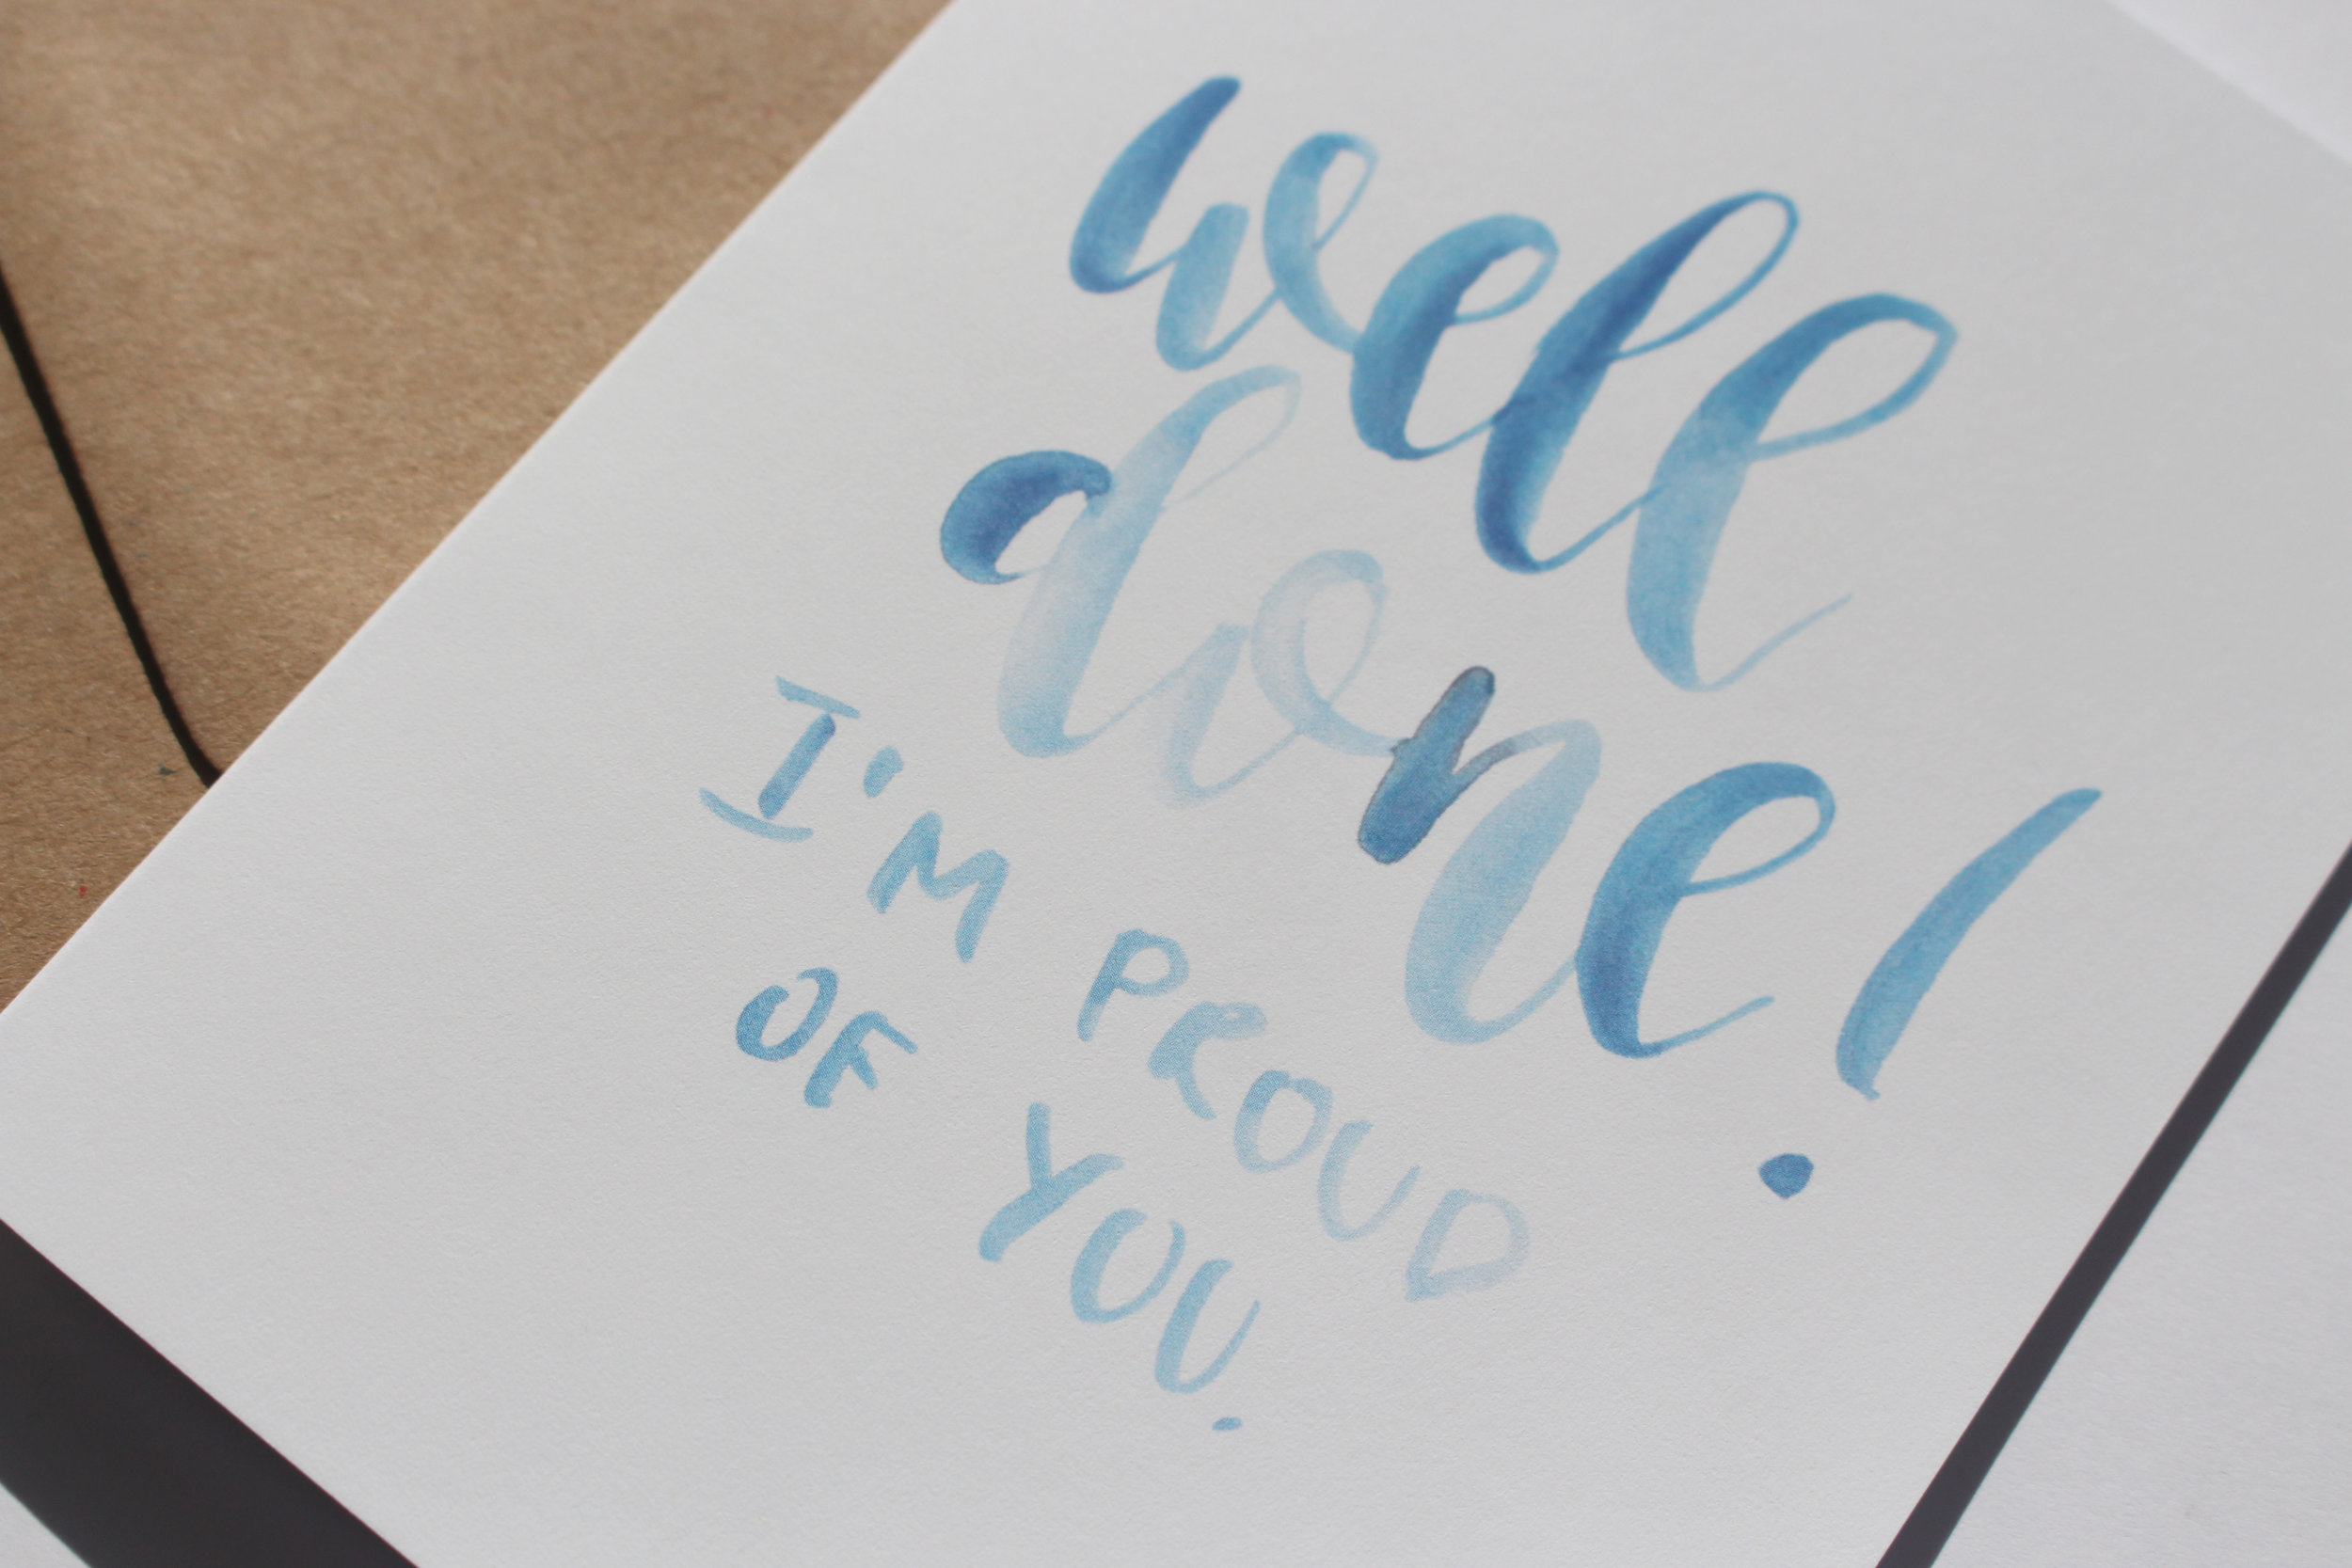 well
done!
I'M PROUD
OF YOU.